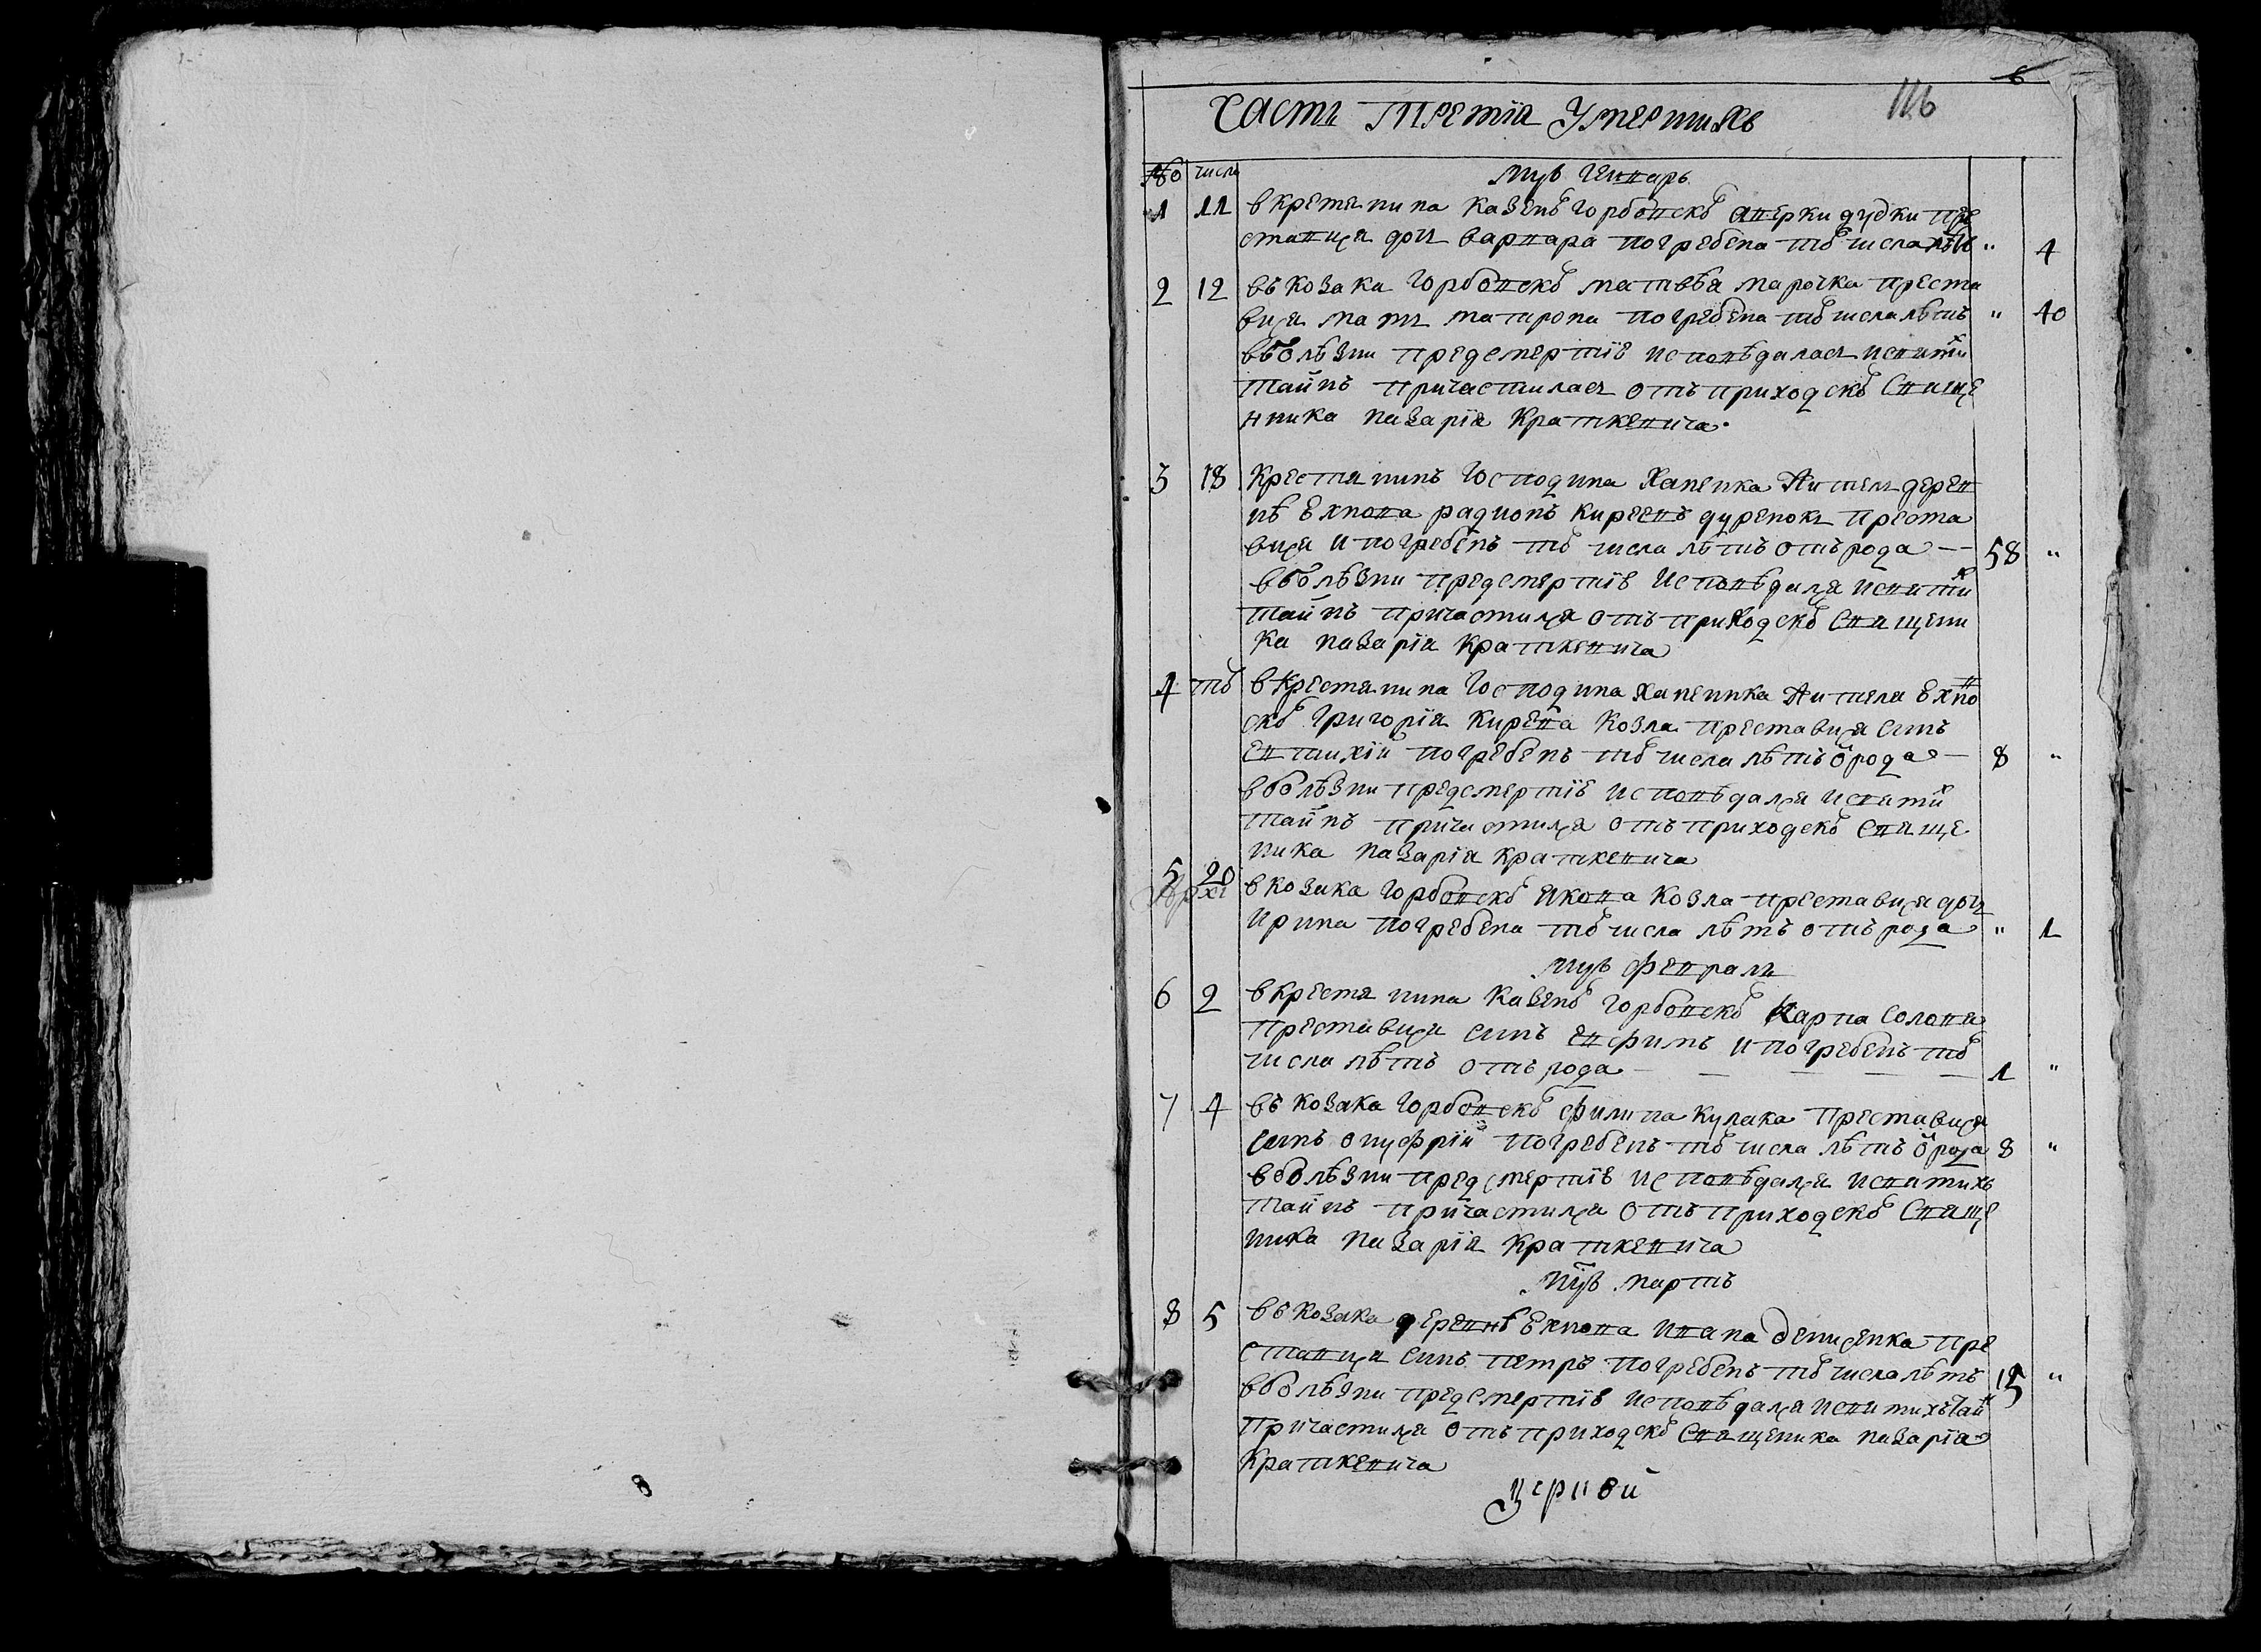 6
116
Часть третїя Умершихъ
№ числа
мцъ генварь
1 11 в крестянина казенъ Горбовскъ аверки дудки пре
ставися дочъ варвара погребена тогъ числа лѣтъ " 4
2 12 въ козака Горбовскъ матвѣя марочка преста
вися мать матрона погребена тогъ числа лѣтъ " 40
в болѣзни предсмертїе исповѣдалась и святи
тайнъ причастилась отъ приходскъ Свяще
нника назарія Краткевича.
3 18 Крестянинъ Господина Ханенка Житель дерев
нѣ Ехнова радионъ Киреевъ дуренокъ преста
вися и погребенъ тогъ числа лѣтъ отъ рода — 58 "
в болѣзни предсмертїе исповѣдался и святи
тайнъ причастился отъ приходскъ Священи
ка назарія Краткевича
4 тогъ в крестянина Господина ханенка Жителя Ехно
скъ Григорїя Кирева Козла преставися синъ
Евтихїй погребенъ тогъ числа лѣтъ ѿ рода — 8 "
в болѣзни предсмертїе исповѣдался и святи
тайнъ причастился отъ приходскъ Свяще
ника назарія Краткевича
5 20 в козака Горбовскъ Якова Козла преставися дочъ
Ирина погребена тогъ числа лѣтъ отъ рода " 1
мцъ февраль
6 2 в крестянина казенъ Горбовскъ Карпа Солова
преставися синъ Евфимъ и погребенъ тогъ
числа лѣтъ отъ рода — — — — — 1 "
7 4 въ козака Горбовскъ филипа Кулака преставися
синъ онуфрїй погребенъ тогъ числа лѣтъ ѿ рода 8 "
в болѣзни предсмертїе исповѣдался и святихъ
тайнъ причастился отъ приходскъ Свяще
ника назарїя Краткевича
мцъ мартъ
8 5 въ козака деревнѣ Ехнова Ивана Денисенка пре
ставися синъ петръ погребенъ тогъ числа лѣтъ 15 "
в болѣзни предсмертїе исповѣдался и святихъ тай
причастился отъ приходскъ Священика назарїя
Краткевича